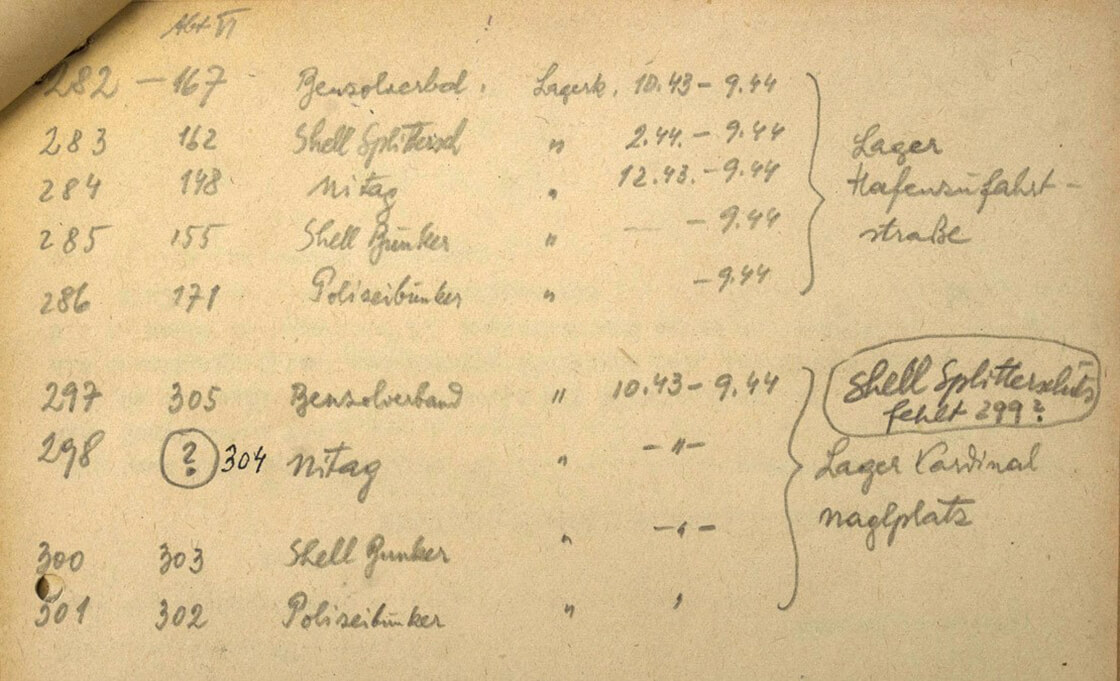 Abt VI
282 – 167 Benzolverbd. Lagerk. 10.43 – 9.44
283 162 Shell Splittersch " 2.44. – 9.44
284 148 Nitag " 12.43. – 9.44
285 155 Shell Bunker " – 9.44
286 171 Polizeibunker " – 9.44
Lager
Hafenzufahrt-
straße
297 305 Benzolverband " 10.43 – 9.44
298 ? 304 Nitag " – " –
300 303 Shell Bunker " – " –
301 302 Polizeibunker " "
Shell Splitterschutz
fehlt 299?
Lager Kardinal
naglplatz